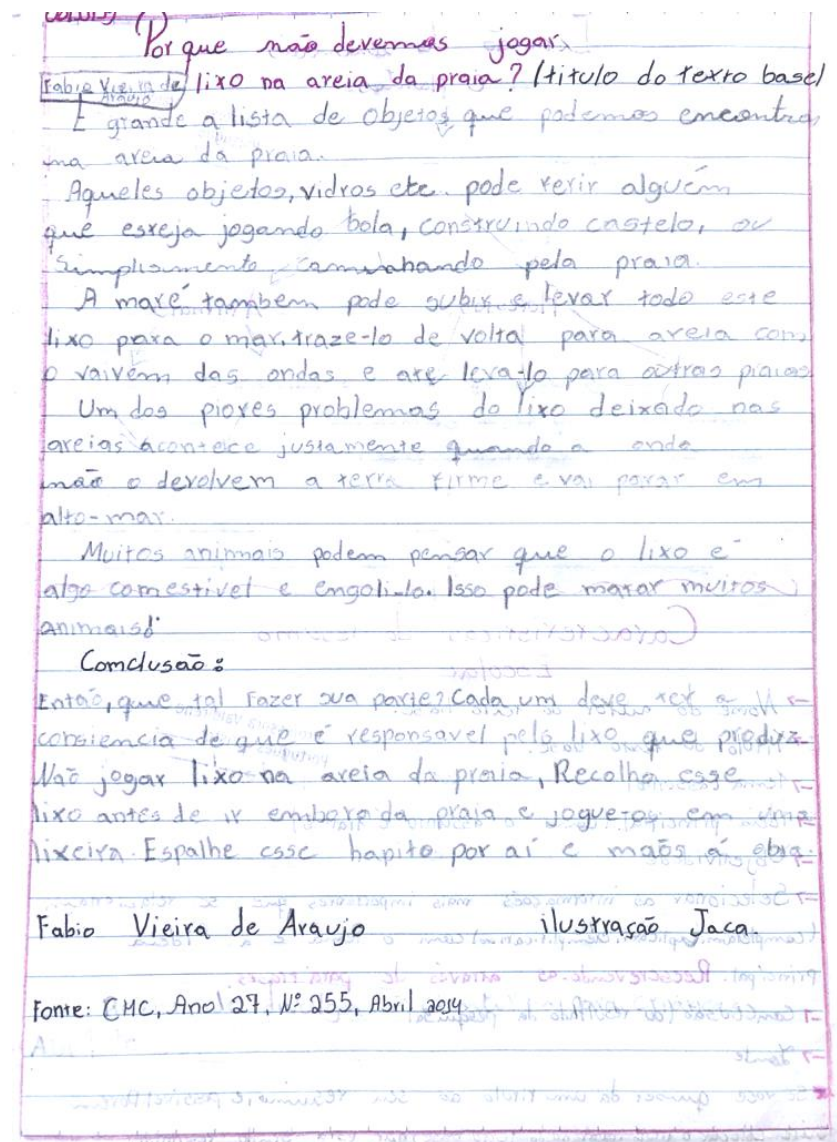 Por que não devemos jogar
Fabio Vieira de Araujo lixo na areia da praia? (titulo do texto base)
É grande a lista de objetos que podemos encontrar
na areia da praia.
Aqueles objetos, vidros etc. pode ferir alguém
que esteja jogando bola, construindo castelo, ou
simplismente caminhando pela praia.
A maré também pode subir e levar todo este
lixo para o mar, traze-lo de volta para areia com
o vaivém das ondas e até leva-lo para outras praias
Um dos piores problemas do lixo deixado nas
areias acontece justamente quando a onda
não o devolvem a terra firme e vai parar em
alto-mar.
Muitos animais podem pensar que o lixo é
algo comestivel e engoli-lo. Isso pode matar muitos
animais
Comclusão:
Então, que tal fazer sua parte? Cada um deve ter a
consiencia de que é responsavel pelo lixo que prodiz.
Não jogar lixo na areia da praia, Recolha esse
lixo antes de ir embora da praia e jogue-os em uma
lixeira. Espalhe esse hapito por aí e maõs á obra.
Fabio Vieira de Araujo ilustração Jaca.
Fonte: CHC, Ano 27, Nº 255, Abril 2014